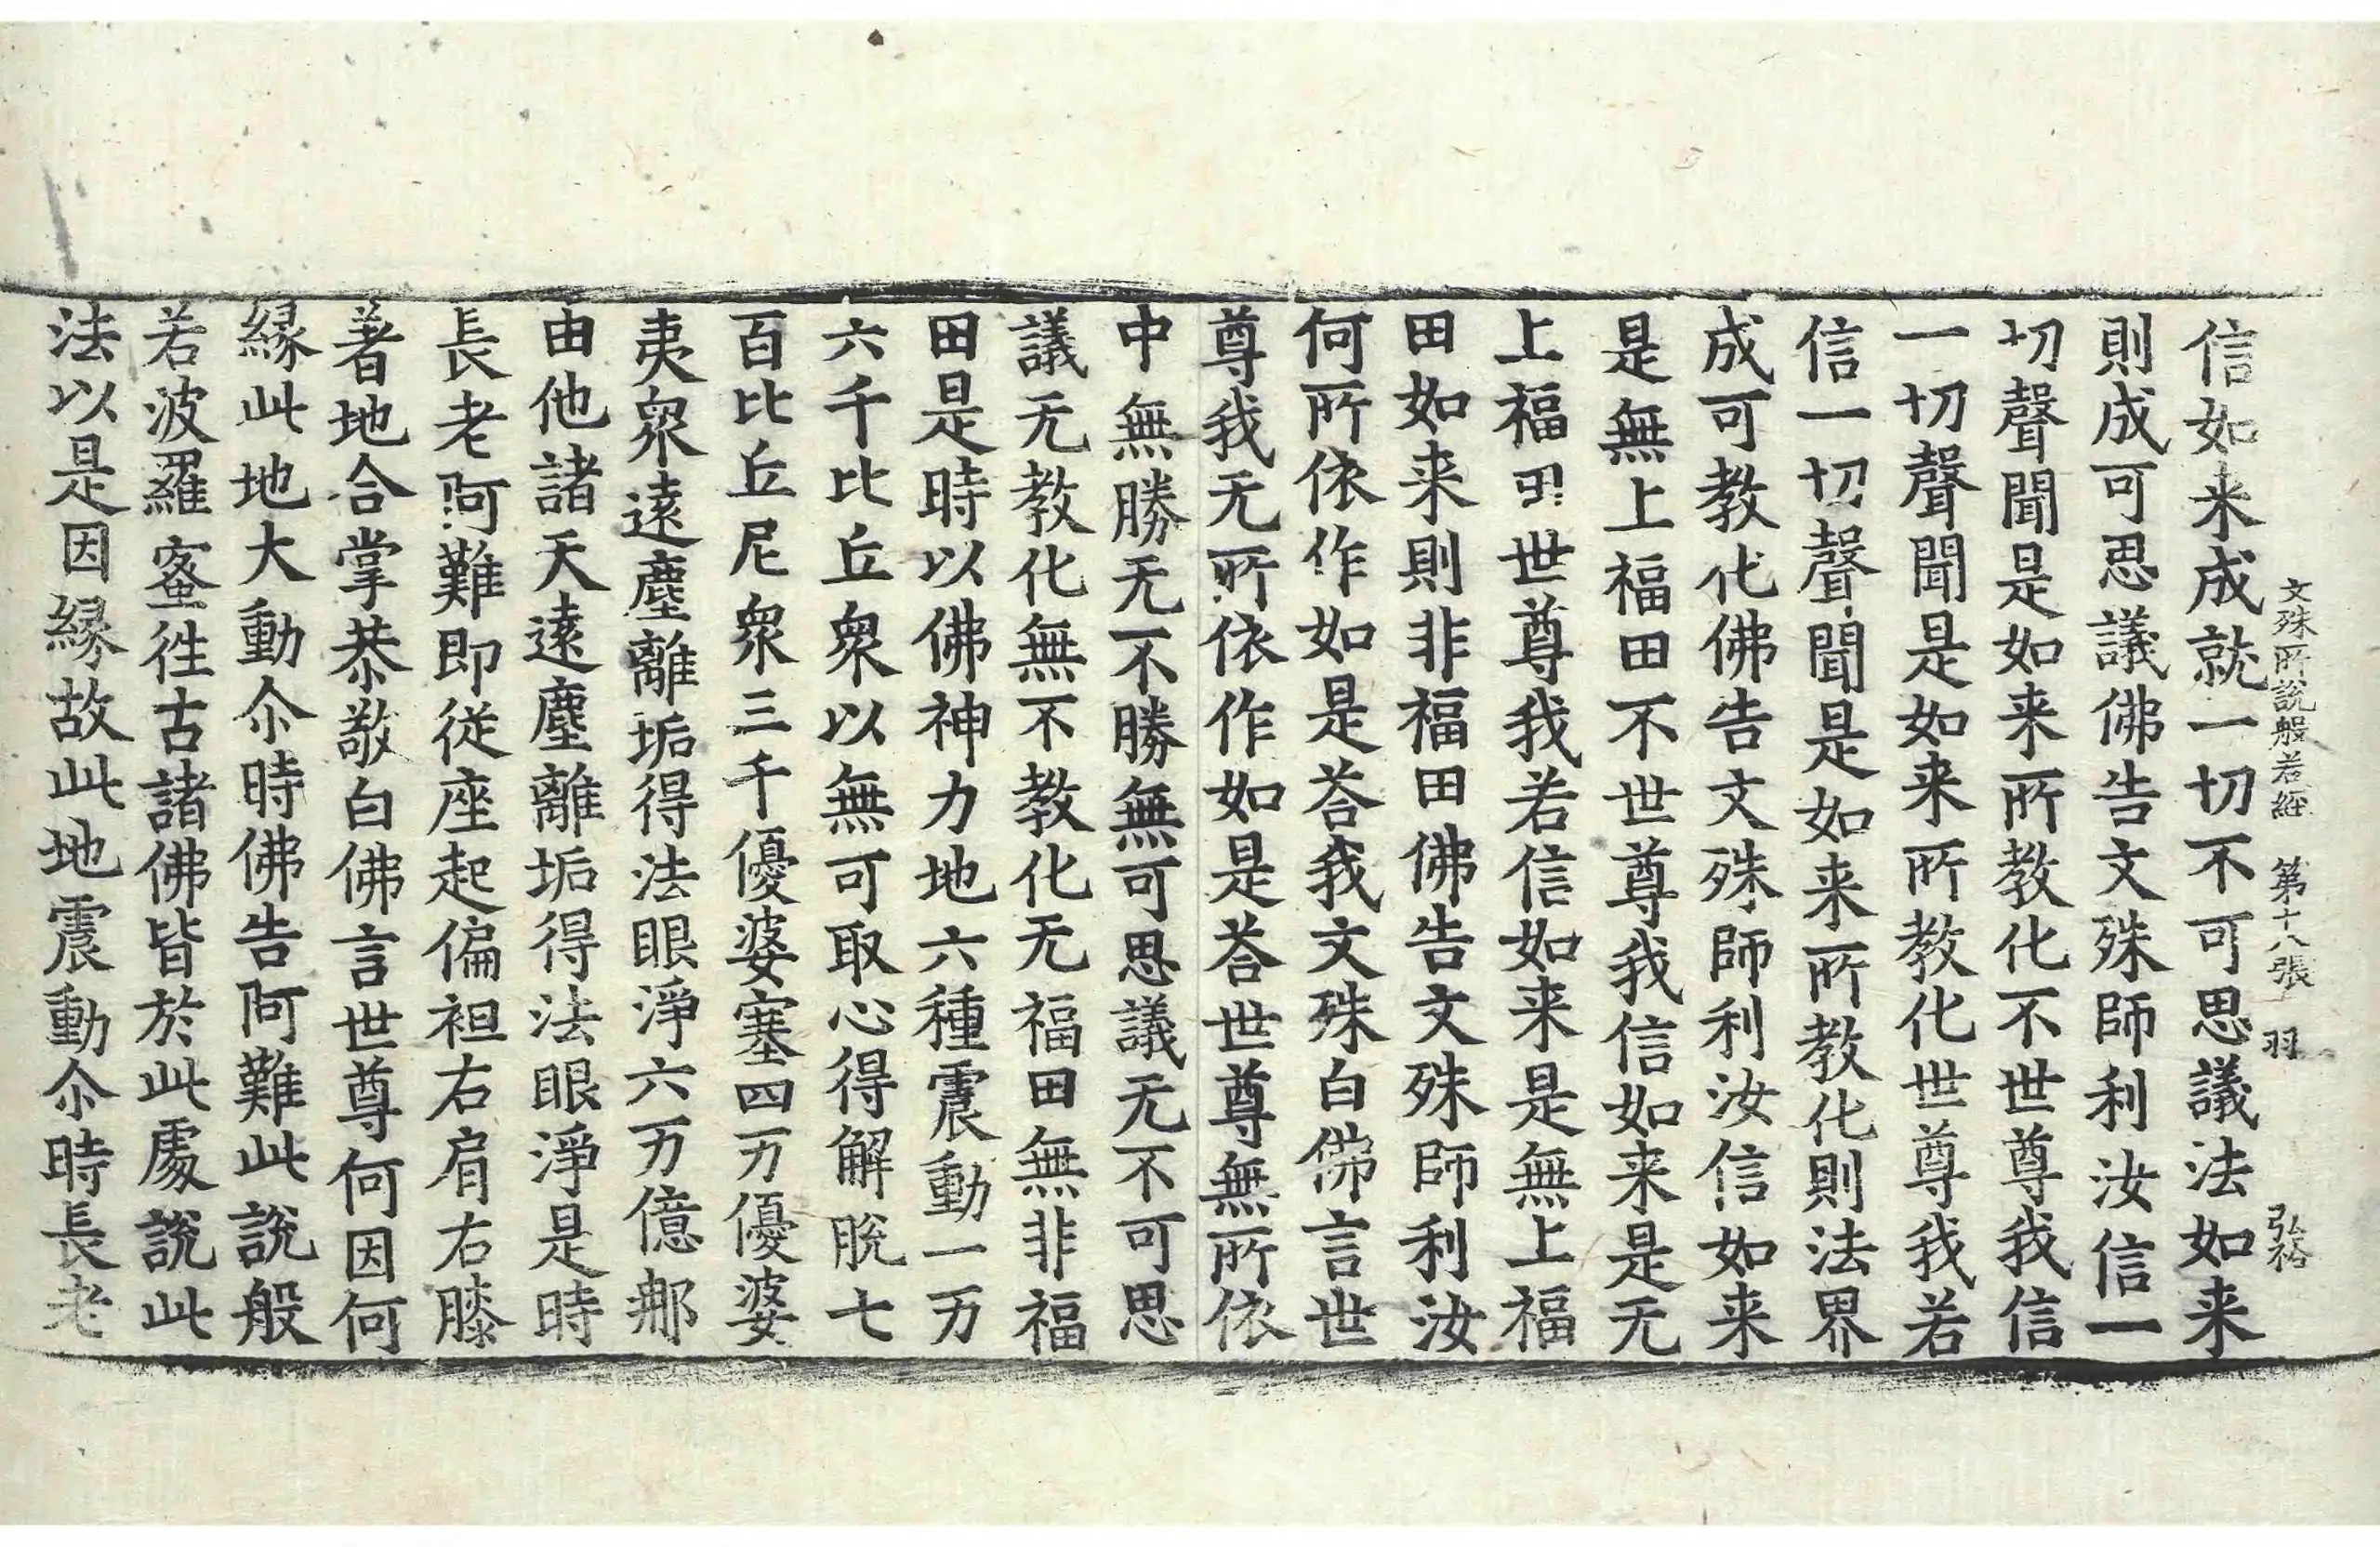 文殊所說般若經 第十八張 羽 弘裕
信如来成就一切不可思議法如来
則成可思議佛告文殊師利汝信一
切聲聞是如来所教化不世尊我信
一切聲聞是如来所教化世尊我若
信一切聲聞是如来所教化則法界
成可教化佛告文殊師利汝信如来
是無上福田不世尊我信如来是无
上福田世尊我若信如来是無上福
田如来則非福田佛告文殊師利汝
何所依作如是荅我文殊白佛言世
尊我无所依作如是荅世尊無所依
中無勝无不勝無可思議无不可思
議无教化無不教化无福田無非福
田是時以佛神力地六種震動一万
六千比丘衆以無可取心得解脫七
百比丘尼衆三千優婆塞四万優婆
夷衆遠塵離垢得法眼淨六万億那
由他諸天遠塵離垢得法眼淨是時
長老阿難即從座起偏袒右肩右膝
著地合掌恭敬白佛言世尊何因何
緣此地大動尒時佛告阿難此說般
若波羅蜜徃古諸佛皆於此處說此
法以是因緣故此地震動尒時長老